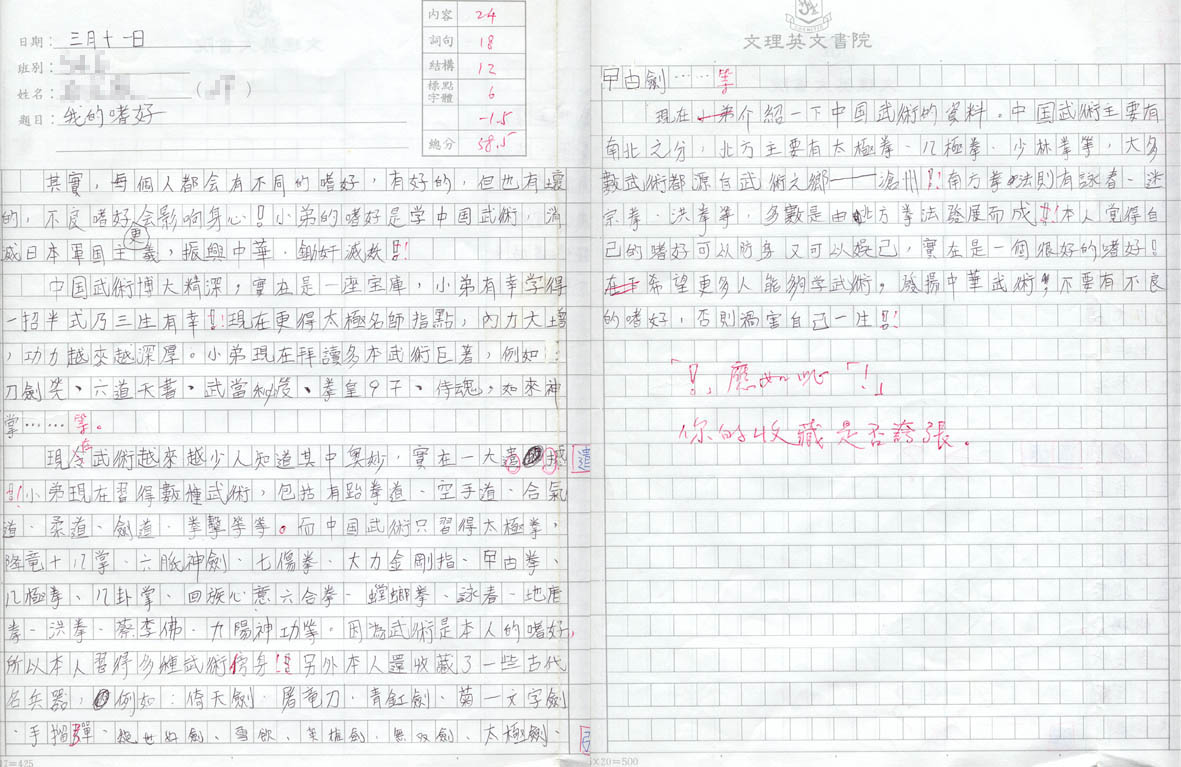 日期：三月十一日
班別：
姓名：
題目：我的嗜好
內容 24
詞句 18
結構 12
標點字體 6
-1.5
總分 58.5
其實，每個人都会有不同的嗜好，有好的，但也有壞
的，不良嗜好会影响身心！小弟的嗜好是学中国武術，消
滅日本軍国主義，振興中华，鋤奸滅敵！
中国武術博大精深，實在是一座宝庫，小弟有幸学得
一招半式乃三生有幸！現在更得太極名師指點，內力大增
，功力越來越深厚。小弟現在拜讀多本武術巨著，例如：
刀劍笑、六道天書、武當秘笈、拳皇97、侍魂，如來神
掌……等。
現今武術越來越少人知道其中奥妙，實在一大遺憾
！小弟現在習得數種武術，包括有跆拳道、空手道、合氣
道、柔道、劍道、拳擊等等。而中国武術只習得太極拳，
降竜十八掌、六脈神劍、七傷拳、大力金剛指、曱甴拳、
八極拳、八卦掌、回族心意六合拳、螳螂拳、詠春、地庹
拳、洪拳、蔡李佛、九陽神功等。因為武術是本人的嗜好，
所以本人習得多種武術傍身！另外本人還收藏了一些古代
名兵器，例如：倚天劍、屠竜刀、青釭劍、菊一文字劍
、手榴彈、雪飲、無双劍、太極劍、
遺
17=425
文理英文書院
曱甴劍……等
現在介紹一下中国武術的資料。中国武術主要有
南北之分，北方主要有太極拳、八極拳、少林拳等，大多
數武術都源自武術之鄉——滄州！南方拳法則有詠春、迷
宗拳、洪拳等，多數是由北方拳法發展而成！本人覚得自
己的嗜好可以防身又可以娛己，實在是一個很好的嗜好！
希望更多人能夠学武術，發揚中華武術，不要有不良
的嗜好，否則禍害自己一生！
「！」應如此「！」
你的收藏是否誇張．
25X20=500